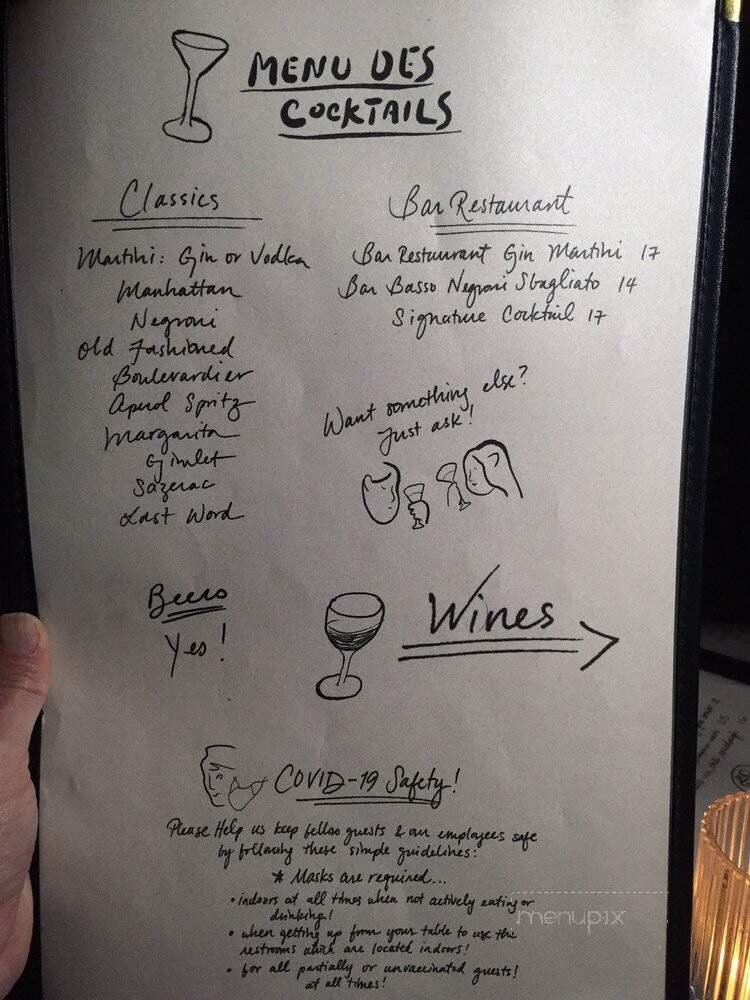 MENU DES
COCKTAILS
Classics
Martini: Gin or Vodka
Manhattan
Negroni
Old Fashioned
Boulevardier
Aperol Spritz
Margarita
Gimlet
Sazerac
Last Word
Bar Restaurant
Bar Restaurant Gin Martini 17
Bar Basso Negroni Sbagliato 14
Signature Cocktail 17
Want something else?
Just ask!
Beers
Yes!
Wines
COVID-19 Safety!
Please Help us keep fellow guests & our employees safe
by following these simple guidelines:
* Masks are required...
• indoors at all times when not actively eating or
drinking!
• when getting up from your table to use the
restrooms which are located indoors!
• for all partially or unvaccinated guests!
at all times!
menupix